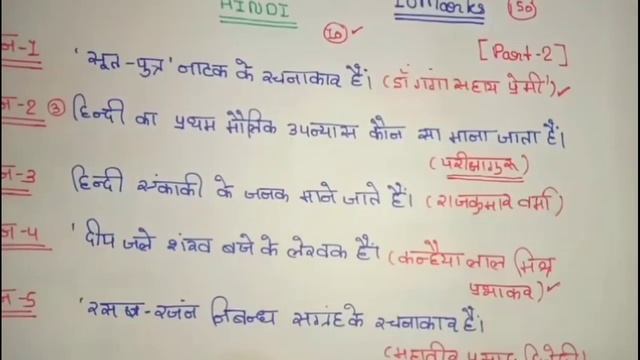 HINDI 10Marks (50)
(10) ✓ [Part-2]
न-1 'सूत-पुत्र' नाटक के रचनाकार हैं। (डॉ गंगा सहाय प्रेमी') ✓
न-2 ③ हिन्दी का प्रथम मौलिक उपन्यास कौन सा माना जाता हैं।
(परीक्षागुरू)
न-3 हिन्दी एंकाकी के जनक माने जाते हैं। (राजकुमार वर्मा)
न-4 'दीप जले शंख बजे के लेखक हैं। (कन्हैया लाल मिश्र
प्रभाकर) ✓
न-5 'रसज्ञ-रजंन निबन्ध सग्रंह के रचनाकार हैं।
(महावीर प्रसाद द्विवेदी)